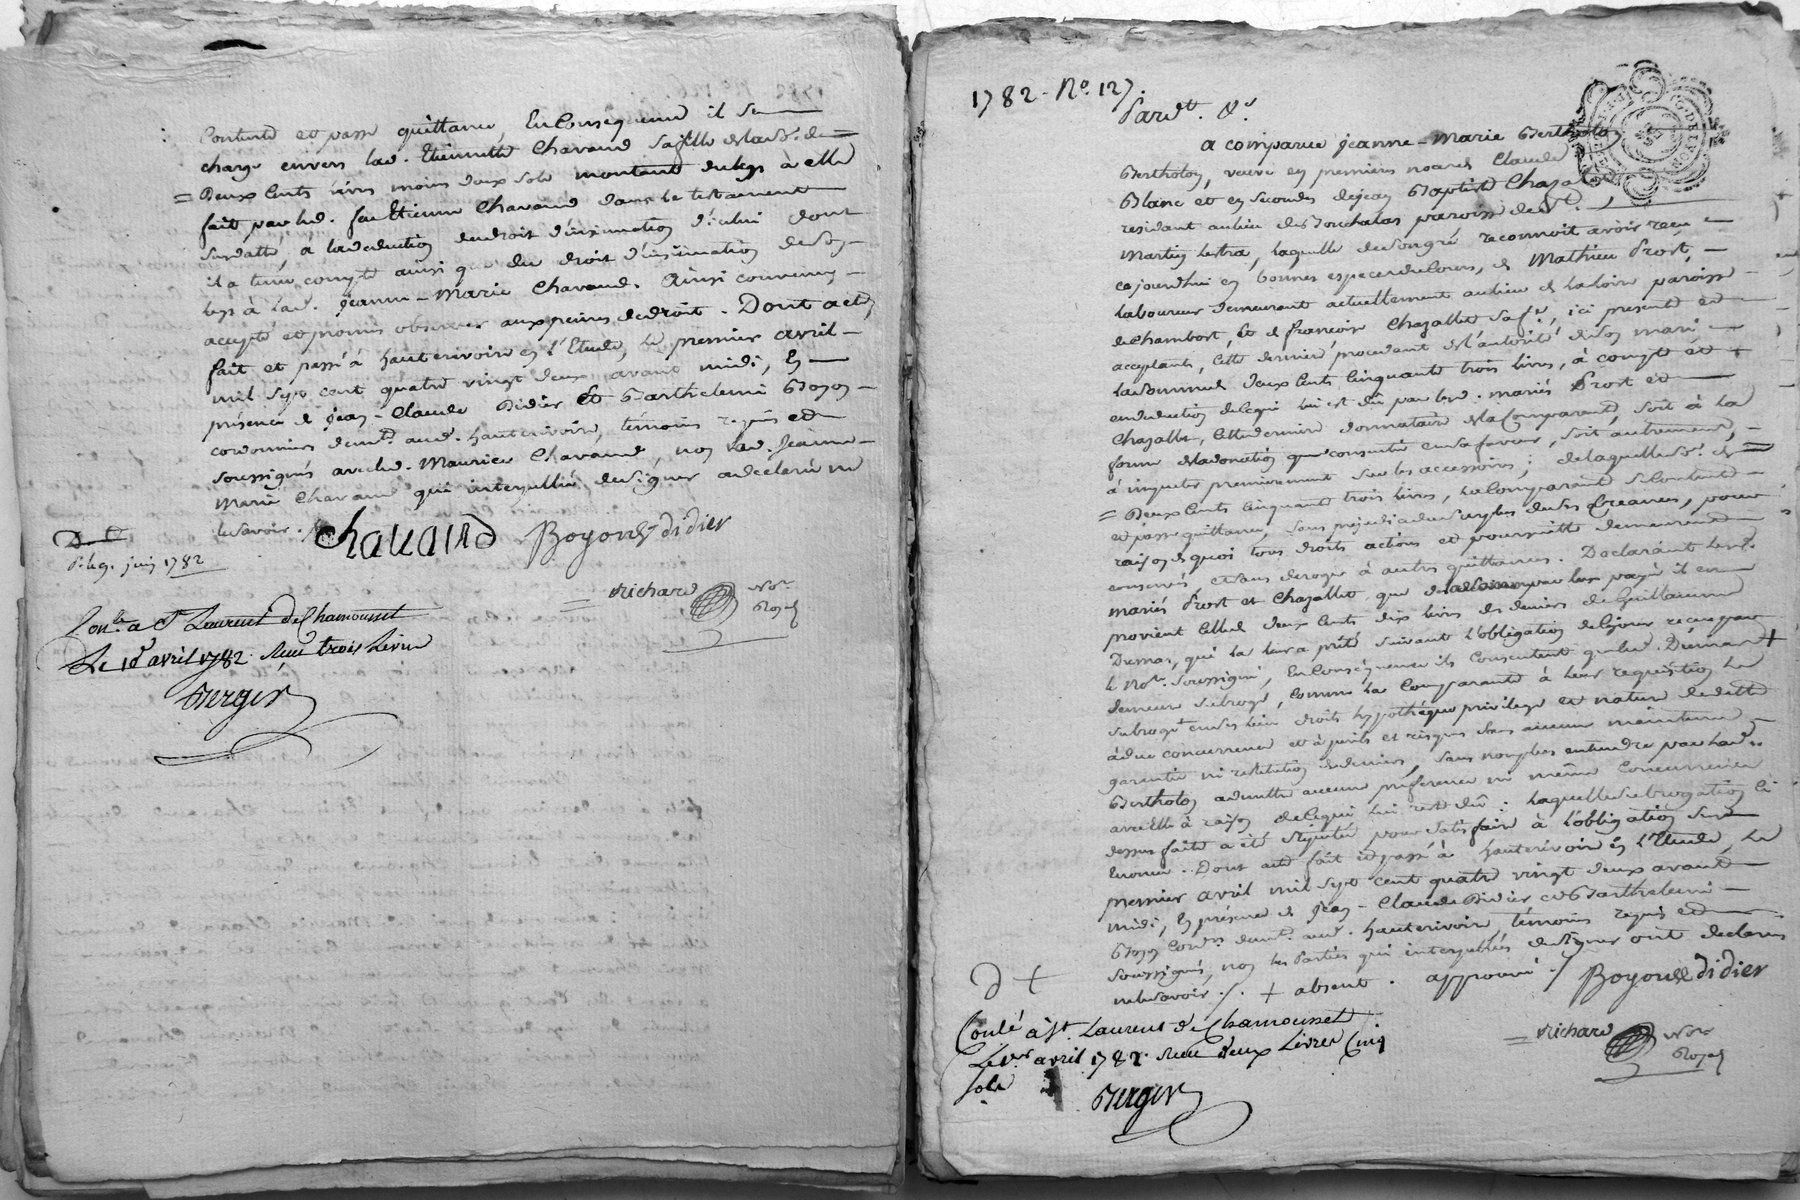 Contente et passe quittance, En Conséquence il se
charge envers lad. Etiennette Chavand sa fille de la So.e de =
= Deux Cents livres moins deux sols montant du legs à elle
fait par led. feu Etienne Chavand dans le testament
susdatté, a la deduction du droit d'insinuation d'icelui dont
il a tenu compte ainsi que du droit d'insinuation de son
legs à lad. Jeanne-Marie Chavand. Ainsi convenu,
accepté et promis observer aux peines de droit. Dont acte,
fait et passé à hauterivoire en l'Etude, le premier avril
mil sept cent quatre vingt deux avant midi, En
présence de Jean-Claude Didier et Barthelemi Boyon
cordonniers demt. aud. hauterivoire, témoins requis et
soussignés avec led. Maurice Chavand, non lad. Jeanne-
Marie Chavand qui interpellée de signer a declaré ne
le savoir.
Chavand Boyon didier
juin 1782
Richard No.re Royal
Con.lé a St Laurent de Chamousset
Le 1er avril 1782. Reçu trois Livres
Berger
1782 - No. 127.
Pard.t &.
a comparue Jeanne-Marie Bertholon
Bertholon, veuve en premieres noces de Claude
Blanc et en secondes de Jean Baptiste Chazal
residant au lieu des paroisse de St.
Martin Lestra, laquelle de son gré reconnoit avoir reçu
cejourdhui en bonnes especes de cours, de Mathieu Prost,
laboureur demeurant actuellement au lieu de la Loire paroisse
de Chambost, et de françoise Chazallet sa fe., ici presents et
acceptants, cette derniere procedant de l'autorité de son mari
la somme de Deux Cents Cinquante trois livres, à compte et +
en deduction de ce qui lui est dû par lesd. mariés Prost et
Chazallet, cette derniere donnataire de la Comparante, soit à la
forme de la donation que consentie en sa faveur, soit autrement,
à imputer premierement sur les accessoires; de laquelle So.e de =
= Deux Cents Cinquante trois livres, la Comparante se Contente
et passe quittance, sans prejudice du surplus de ses Creances, pour
raison de quoi tous droits actions et poursuitte demeurent
conservés et sans deroger à autres quittances. Declarant lesd.
mariés Prost et Chazallet que de la somme par eux payée il en
provient Celle de deux cents dix livres des deniers de Guillaume
Dumas, qui la leur a prêté suivant l'obligation de ce jour reçue par
le No.re soussigné, En Conséquence ils Consentent que led. Dumas +
demeure subrogé, comme la Comparante à leur requisition le
subroge en ses lieu droits hypothéque privilege et nature de dette
à due concurrence et à perils et risques sans aucune maintenue
garentie ni restitution de deniers, sans non plus entendre par lad.
Bertholon admettre aucune preference ni même Concurrence
avec Elle à raison de ce qui lui reste dû: laquelle subrogation ci
dessus faite a été stipulée pour satisfaire à l'obligation sus
Enoncée. Dont acte fait et passé à hauterivoire en l'Etude, le
premier avril mil sept cent quatre vingt deux avant
midi, En présence de Jean-Claude Didier et Barthelemi
Boyon Cordrs. demt. aud. hauterivoire, témoins requis et
soussignés, non les Parties qui interpellées de signer ont declaré
ne le savoir ./. + absent. approuvé ./ Boyon didier
Richard No.re Royal
Con.lé à St. Laurent de Chamousset
Le 1er avril 1782. Reçu deux Livres Cinq
sols
Berger